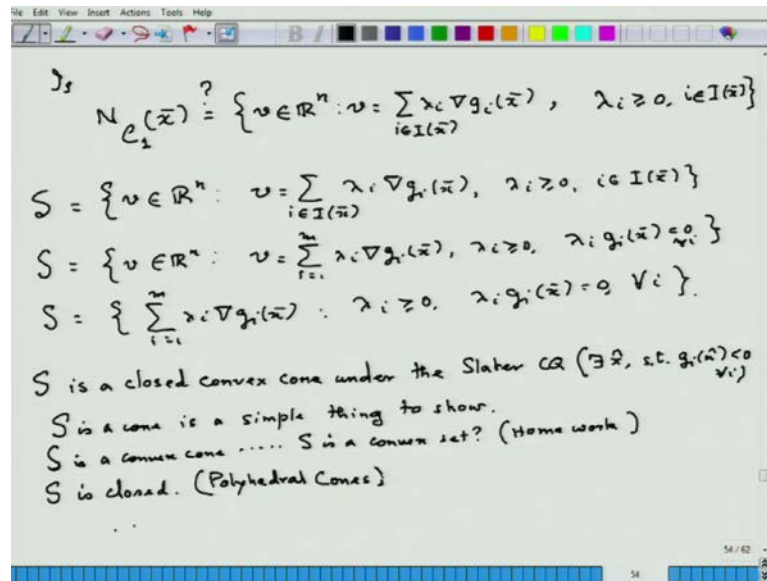 File Edit View Insert Actions Tools Help
B I
Is
N_{C_1}(x̄) ?= {v ∈ ℝⁿ : v = Σ_{i∈I(x̄)} λ_i ∇g_i(x̄), λ_i ≥ 0, i ∈ I(x̄)}
S = {v ∈ ℝⁿ : v = Σ_{i∈I(x̄)} λ_i ∇g_i(x̄), λ_i ≥ 0, i ∈ I(x̄)}
S = {v ∈ ℝⁿ : v = Σ_{i=1}^{m} λ_i ∇g_i(x̄), λ_i ≥ 0, λ_i g_i(x̄) = 0 ∀i}
S = {Σ_{i=1}^{m} λ_i ∇g_i(x̄) : λ_i ≥ 0, λ_i g_i(x̄) = 0, ∀i}.
S is a closed convex cone under the Slater CQ (∃ x̂, s.t. g_i(x̂) < 0 ∀i)
S is a cone is a simple thing to show.
S is a convex cone ..... S is a convex set? (Home work)
S is closed. (Polyhedral Cones)
. .
54 / 62
54